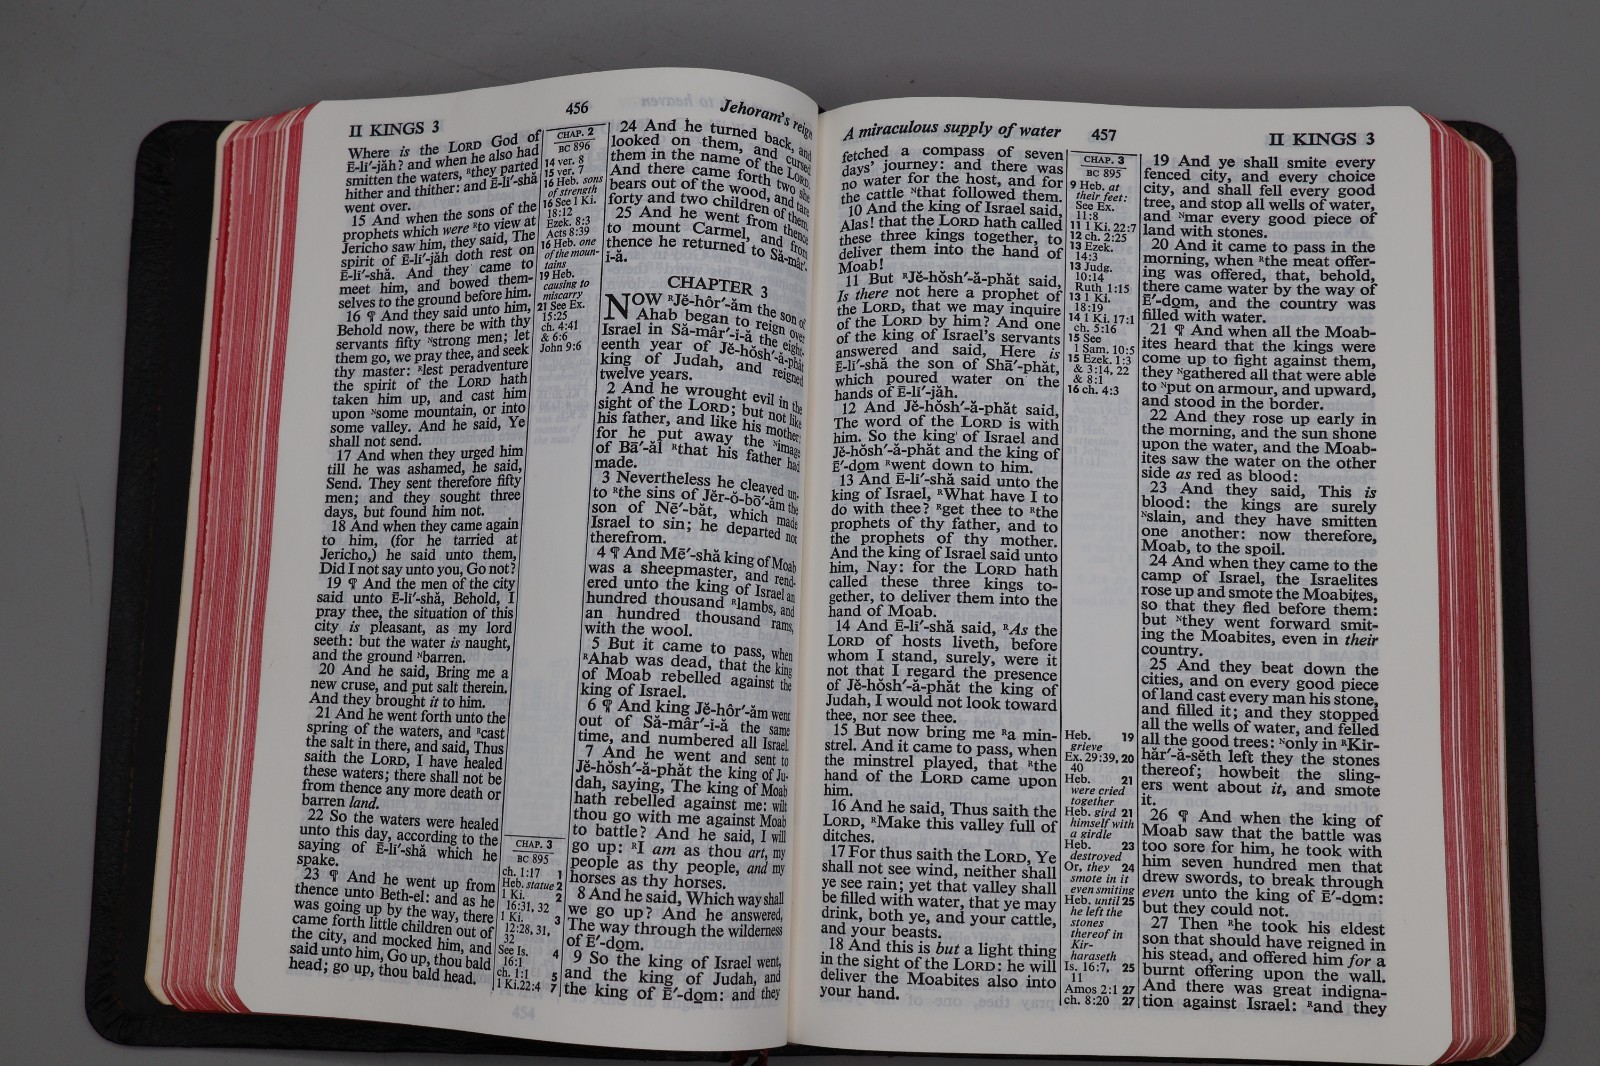 II KINGS 3
456
Jehoram's reign
Where is the LORD God of
Ē-lī′-jăh? and when he also had
smitten the waters, ᴿthey parted
hither and thither: and Ē-lī′-shă
went over.
15 And when the sons of the
prophets which were ᴿto view at
Jericho saw him, they said, The
spirit of Ē-lī′-jăh doth rest on
Ē-lī′-shă. And they came to
meet him, and bowed them-
selves to the ground before him.
16 ¶ And they said unto him,
Behold now, there be with thy
servants fifty ᴺstrong men; let
them go, we pray thee, and seek
thy master: ᴿlest peradventure
the spirit of the LORD hath
taken him up, and cast him
upon ᴺsome mountain, or into
some valley. And he said, Ye
shall not send.
17 And when they urged him
till he was ashamed, he said,
Send. They sent therefore fifty
men; and they sought three
days, but found him not.
18 And when they came again
to him, (for he tarried at
Jericho,) he said unto them,
Did I not say unto you, Go not?
19 ¶ And the men of the city
said unto Ē-lī′-shă, Behold, I
pray thee, the situation of this
city is pleasant, as my lord
seeth: but the water is naught,
and the ground ᴺbarren.
20 And he said, Bring me a
new cruse, and put salt therein.
And they brought it to him.
21 And he went forth unto the
spring of the waters, and ᴿcast
the salt in there, and said, Thus
saith the LORD, I have healed
these waters; there shall not be
from thence any more death or
barren land.
22 So the waters were healed
unto this day, according to the
saying of Ē-lī′-shă which he
spake.
23 ¶ And he went up from
thence unto Beth-el: and as he
was going up by the way, there
came forth little children out of
the city, and mocked him, and
said unto him, Go up, thou bald
head; go up, thou bald head.
CHAP. 2
BC 896
14 ver. 8
15 ver. 7
16 Heb. sons
of strength
16 See 1 Ki.
18:12
Ezek. 8:3
Acts 8:39
16 Heb. one
of the moun-
tains
19 Heb.
causing to
miscarry
21 See Ex.
15:25
ch. 4:41
& 6:6
John 9:6
CHAP. 3
BC 895
ch. 1:17 1
Heb. statue 2
1 Ki. 2
16:31, 32
1 Ki. 3
12:28, 31,
32
See Is. 4
16:1
ch. 1:1 5
1 Ki.22:4 7
24 And he turned back, and
looked on them, and cursed
them in the name of the LORD.
And there came forth two she
bears out of the wood, and tare
forty and two children of them.
25 And he went from thence
to mount Carmel, and from
thence he returned to Să-mâr′-
i-ă.
CHAPTER 3
NOW ᴿJĕ-hôr′-ăm the son of
Ahab began to reign over
Israel in Să-mâr′-i-ă the eight-
eenth year of Jĕ-hŏsh′-ă-phăt
king of Judah, and reigned
twelve years.
2 And he wrought evil in the
sight of the LORD; but not like
his father, and like his mother:
for he put away the ᴺimage
of Bā′-ăl ᴿthat his father had
made.
3 Nevertheless he cleaved un-
to ᴿthe sins of Jĕr-ŏ-bō′-ăm the
son of Nē′-băt, which made
Israel to sin; he departed not
therefrom.
4 ¶ And Mē′-shă king of Moab
was a sheepmaster, and rend-
ered unto the king of Israel an
hundred thousand ᴿlambs, and
an hundred thousand rams,
with the wool.
5 But it came to pass, when
ᴿAhab was dead, that the king
of Moab rebelled against the
king of Israel.
6 ¶ And king Jĕ-hôr′-ăm went
out of Să-mâr′-i-ă the same
time, and numbered all Israel.
7 And he went and sent to
Jĕ-hŏsh′-ă-phăt the king of Ju-
dah, saying, The king of Moab
hath rebelled against me: wilt
thou go with me against Moab
to battle? And he said, I will
go up: ᴿI am as thou art, my
people as thy people, and my
horses as thy horses.
8 And he said, Which way shall
we go up? And he answered,
The way through the wilderness
of Ē′-dọm.
9 So the king of Israel went,
and the king of Judah, and
the king of Ē′-dọm: and they
A miraculous supply of water
457
II KINGS 3
fetched a compass of seven
days' journey: and there was
no water for the host, and for
the cattle ᴺthat followed them.
10 And the king of Israel said,
Alas! that the LORD hath called
these three kings together, to
deliver them into the hand of
Moab!
11 But ᴿJĕ-hŏsh′-ă-phăt said,
Is there not here a prophet of
the LORD, that we may inquire
of the LORD by him? And one
of the king of Israel's servants
answered and said, Here is
Ē-lī′-shă the son of Shā′-phăt,
which poured water on the
hands of Ē-lī′-jăh.
12 And Jĕ-hŏsh′-ă-phăt said,
The word of the LORD is with
him. So the king of Israel and
Jĕ-hŏsh′-ă-phăt and the king of
Ē′-dọm ᴿwent down to him.
13 And Ē-lī′-shă said unto the
king of Israel, ᴿWhat have I to
do with thee? ᴿget thee to ᴿthe
prophets of thy father, and to
the prophets of thy mother.
And the king of Israel said unto
him, Nay: for the LORD hath
called these three kings to-
gether, to deliver them into the
hand of Moab.
14 And Ē-lī′-shă said, ᴿAs the
LORD of hosts liveth, before
whom I stand, surely, were it
not that I regard the presence
of Jĕ-hŏsh′-ă-phăt the king of
Judah, I would not look toward
thee, nor see thee.
15 But now bring me ᴿa min-
strel. And it came to pass, when
the minstrel played, that ᴿthe
hand of the LORD came upon
him.
16 And he said, Thus saith the
LORD, ᴿMake this valley full of
ditches.
17 For thus saith the LORD, Ye
shall not see wind, neither shall
ye see rain; yet that valley shall
be filled with water, that ye may
drink, both ye, and your cattle,
and your beasts.
18 And this is but a light thing
in the sight of the LORD: he will
deliver the Moabites also into
your hand.
CHAP. 3
BC 895
9 Heb. at
their feet:
See Ex.
11:8
11 1 Ki. 22:7
12 ch. 2:25
13 Ezek.
14:3
13 Judg.
10:14
Ruth 1:15
13 1 Ki.
18:19
14 1 Ki. 17:1
ch. 5:16
15 See
1 Sam. 10:5
15 Ezek. 1:3
& 3:14, 22
& 8:1
16 ch. 4:3
Heb. 19
grieve
Ex. 29:39, 20
40
Heb. 21
were cried
together
Heb. gird 21
himself with
a girdle
Heb. 23
destroyed
Or, they 24
smote in it
even smiting
Heb. until 25
he left the
stones
thereof in
Kir-
haraseth
Is. 16:7, 25
11
Amos 2:1 27
ch. 8:20 27
19 And ye shall smite every
fenced city, and every choice
city, and shall fell every good
tree, and stop all wells of water,
and ᴺmar every good piece of
land with stones.
20 And it came to pass in the
morning, when ᴿthe meat offer-
ing was offered, that, behold,
there came water by the way of
Ē′-dọm, and the country was
filled with water.
21 ¶ And when all the Moab-
ites heard that the kings were
come up to fight against them,
they ᴺgathered all that were able
to ᴺput on armour, and upward,
and stood in the border.
22 And they rose up early in
the morning, and the sun shone
upon the water, and the Moab-
ites saw the water on the other
side as red as blood:
23 And they said, This is
blood: the kings are surely
ᴺslain, and they have smitten
one another: now therefore,
Moab, to the spoil.
24 And when they came to the
camp of Israel, the Israelites
rose up and smote the Moabites,
so that they fled before them:
but ᴺthey went forward smit-
ing the Moabites, even in their
country.
25 And they beat down the
cities, and on every good piece
of land cast every man his stone,
and filled it; and they stopped
all the wells of water, and felled
all the good trees: ᴺonly in ᴿKir-
hăr′-ă-sĕth left they the stones
thereof; howbeit the sling-
ers went about it, and smote
it.
26 ¶ And when the king of
Moab saw that the battle was
too sore for him, he took with
him seven hundred men that
drew swords, to break through
even unto the king of Ē′-dọm:
but they could not.
27 Then ᴿhe took his eldest
son that should have reigned in
his stead, and offered him for a
burnt offering upon the wall.
And there was great indigna-
tion against Israel: ᴿand they